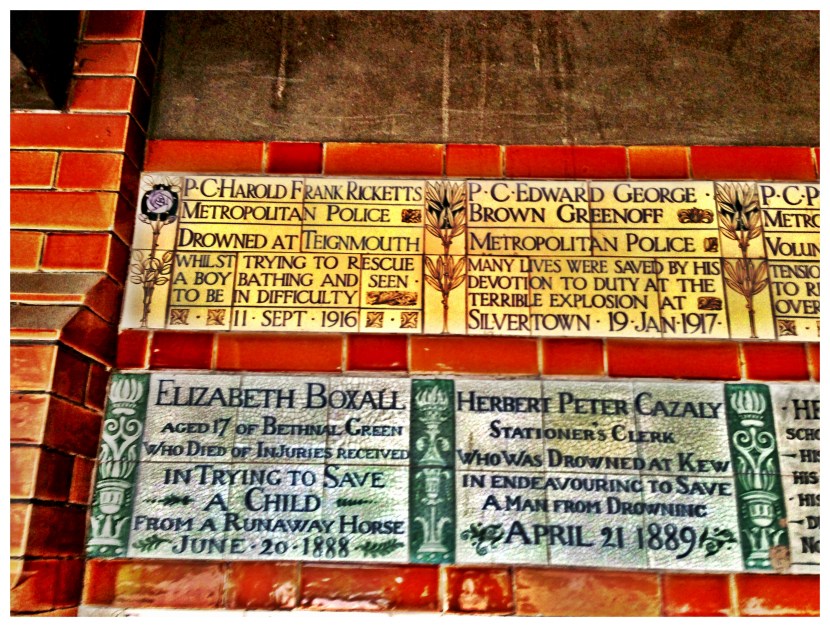 P·C·HAROLD FRANK RICKETTS
METROPOLITAN POLICE
DROWNED AT TEIGNMOUTH
WHILST TRYING TO RESCUE
A BOY BATHING AND SEEN
TO BE IN DIFFICULTY
11 SEPT · 1916
P·C·EDWARD GEORGE ·
BROWN GREENOFF
METROPOLITAN POLICE
MANY LIVES WERE SAVED BY HIS
DEVOTION TO DUTY AT THE
TERRIBLE EXPLOSION AT
SILVERTOWN · 19·JAN·1917·
P·C·P
METRO
VOLUN
TENSIO
TO RE
OVER
ELIZABETH BOXALL
AGED 17 OF BETHNAL GREEN
WHO DIED OF INJURIES RECEIVED
IN TRYING TO SAVE
A CHILD
FROM A RUNAWAY HORSE
JUNE·20·1888
HERBERT PETER CAZALY
STATIONER'S CLERK
WHO WAS DROWNED AT KEW
IN ENDEAVOURING TO SAVE
A MAN FROM DROWNING
APRIL 21 1889
HE
SCHO
HIS
HIS
HIS